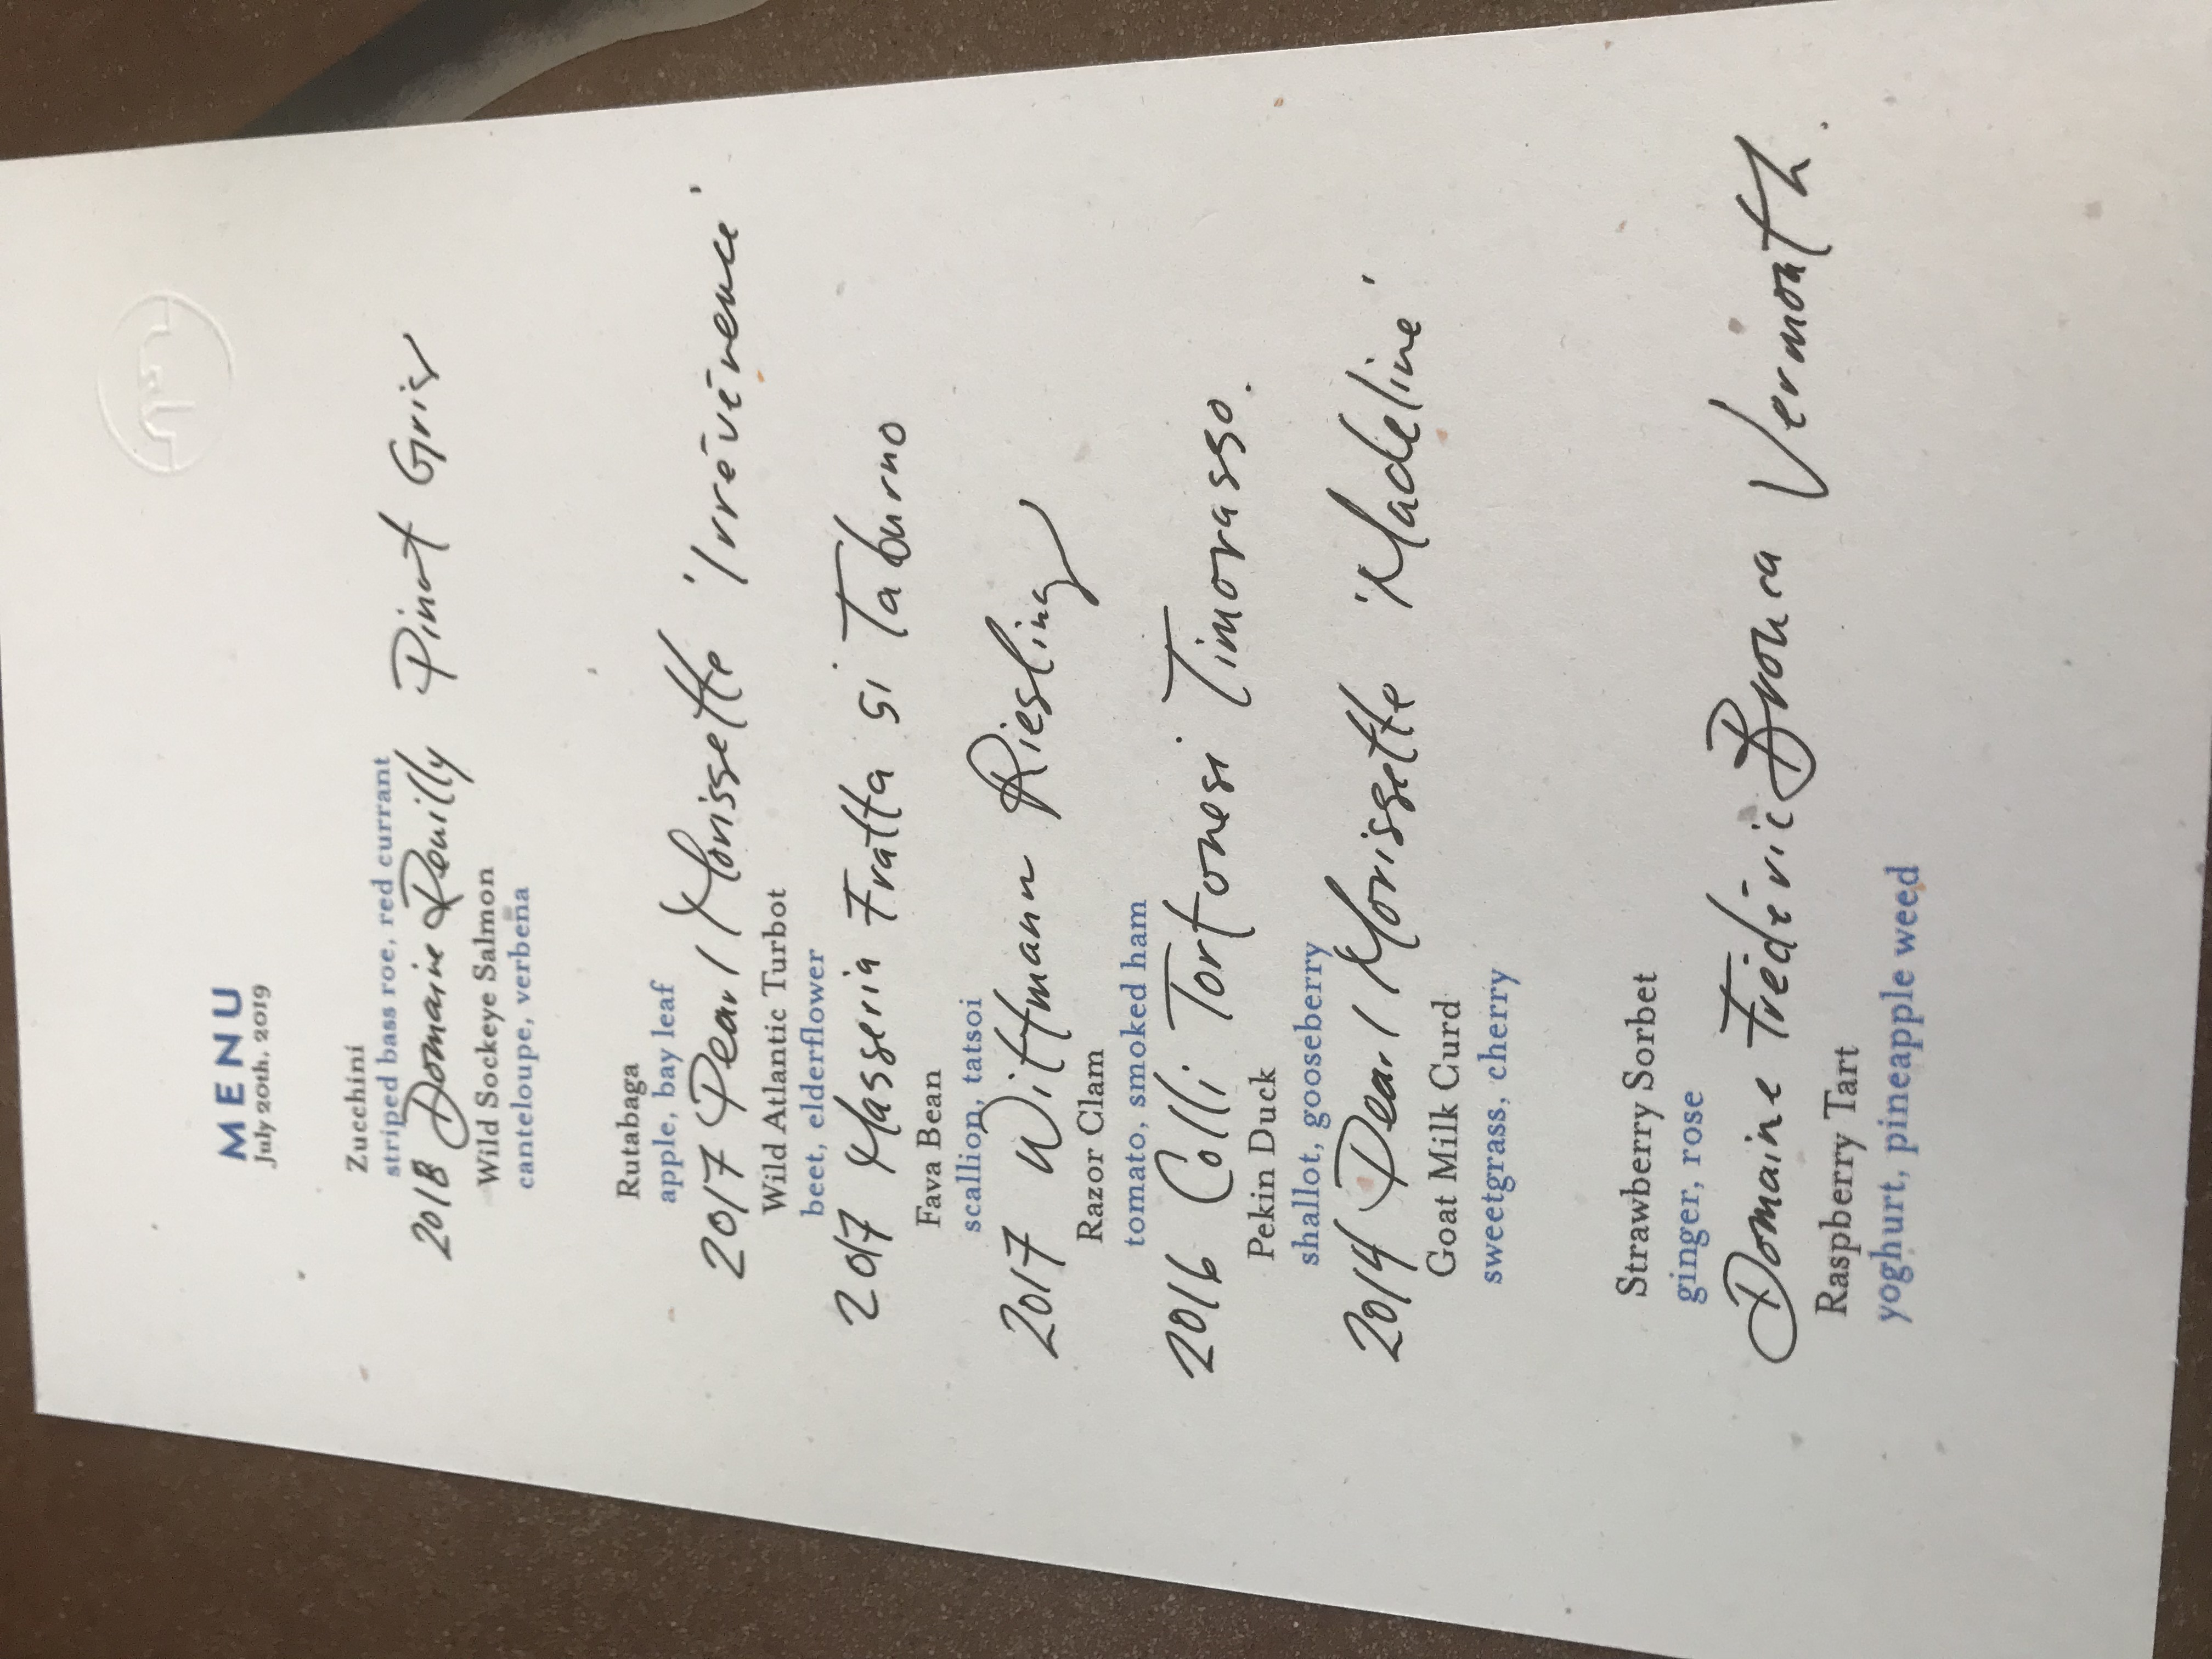 MENU
July 20th, 2019
Zucchini
striped bass roe, red currant
2018 Domaine Reuilly Pinot Gris
Wild Sockeye Salmon
canteloupe, verbena
Rutabaga
apple, bay leaf
2017 Pearl Morissette 'Irrévérence'
Wild Atlantic Turbot
beet, elderflower
2017 Masseria Frattasi Taburno
Fava Bean
scallion, tatsoi
2017 Wittmann Riesling
Razor Clam
tomato, smoked ham
2016 Colli Tortonesi Timorasso.
Pekin Duck
shallot, gooseberry
2014 Pearl Morissette 'Madeline'
Goat Milk Curd
sweetgrass, cherry
Strawberry Sorbet
ginger, rose
Domaine Frédéric Brouca Vermouth.
Raspberry Tart
yoghurt, pineapple weed